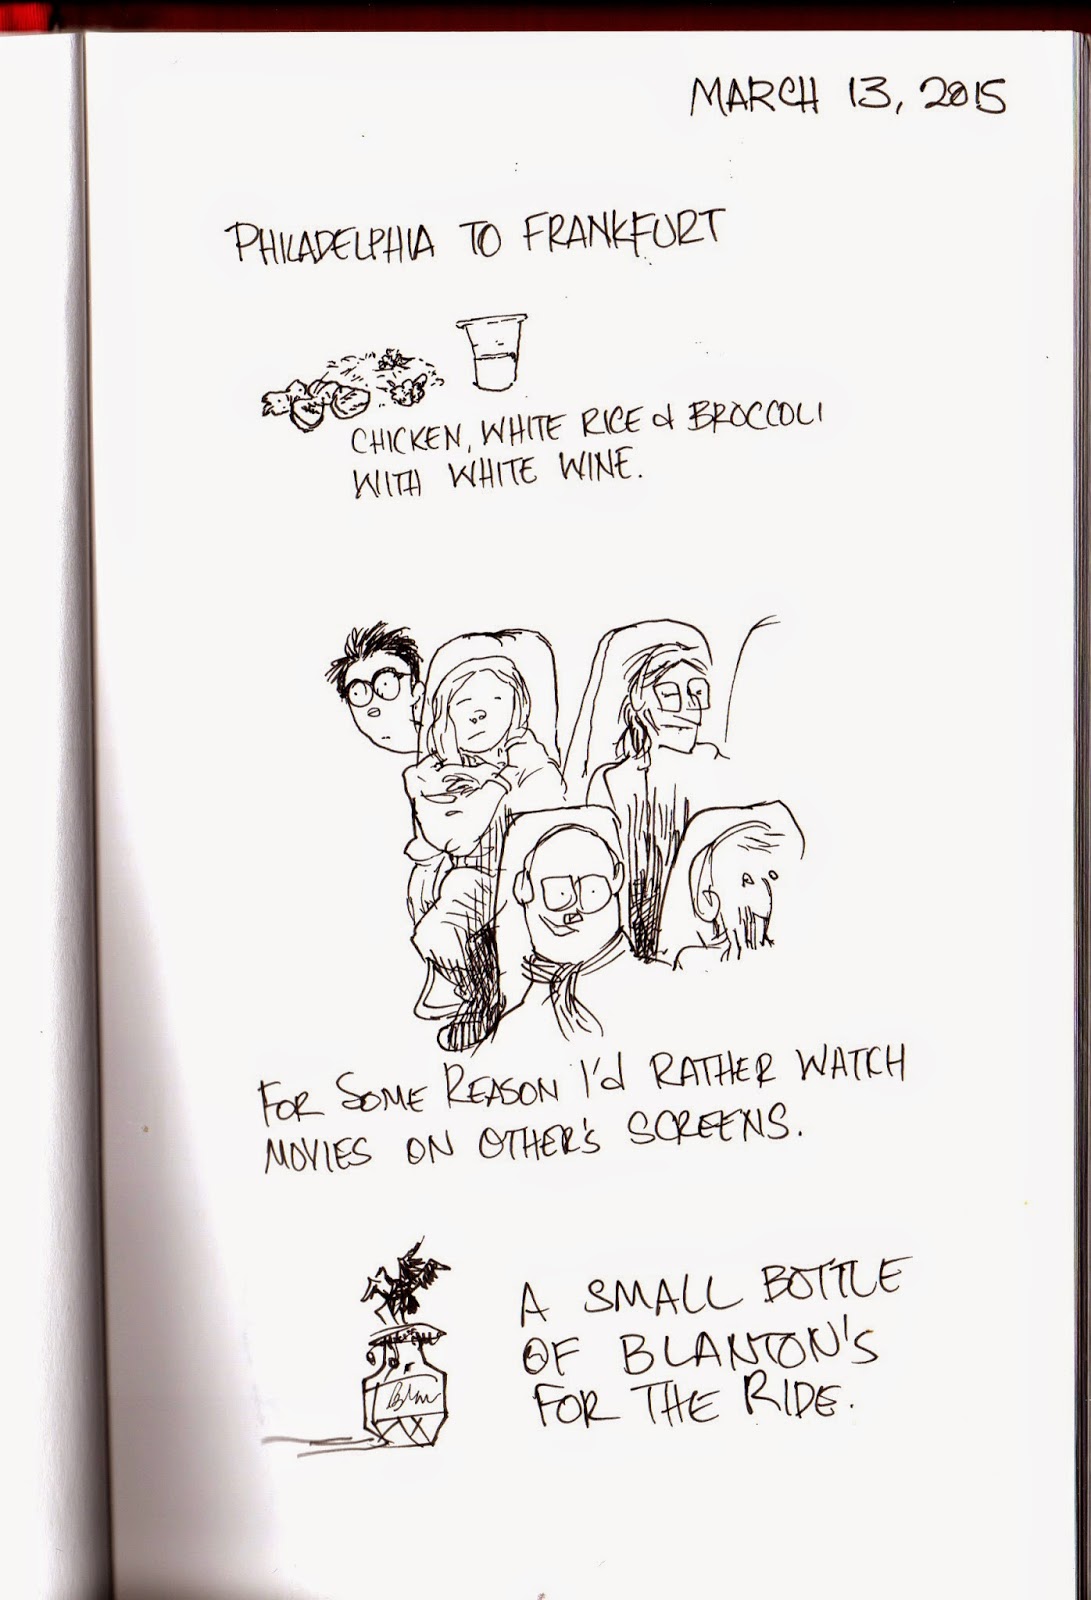 MARCH 13, 2015
PHILADELPHIA TO FRANKFURT
CHICKEN, WHITE RICE & BROCCOLI
WITH WHITE WINE.
FOR SOME REASON I'd RATHER WATCH
MOVIES ON OTHER'S SCREENS.
A SMALL BOTTLE
OF BLANTON'S
FOR THE RIDE.